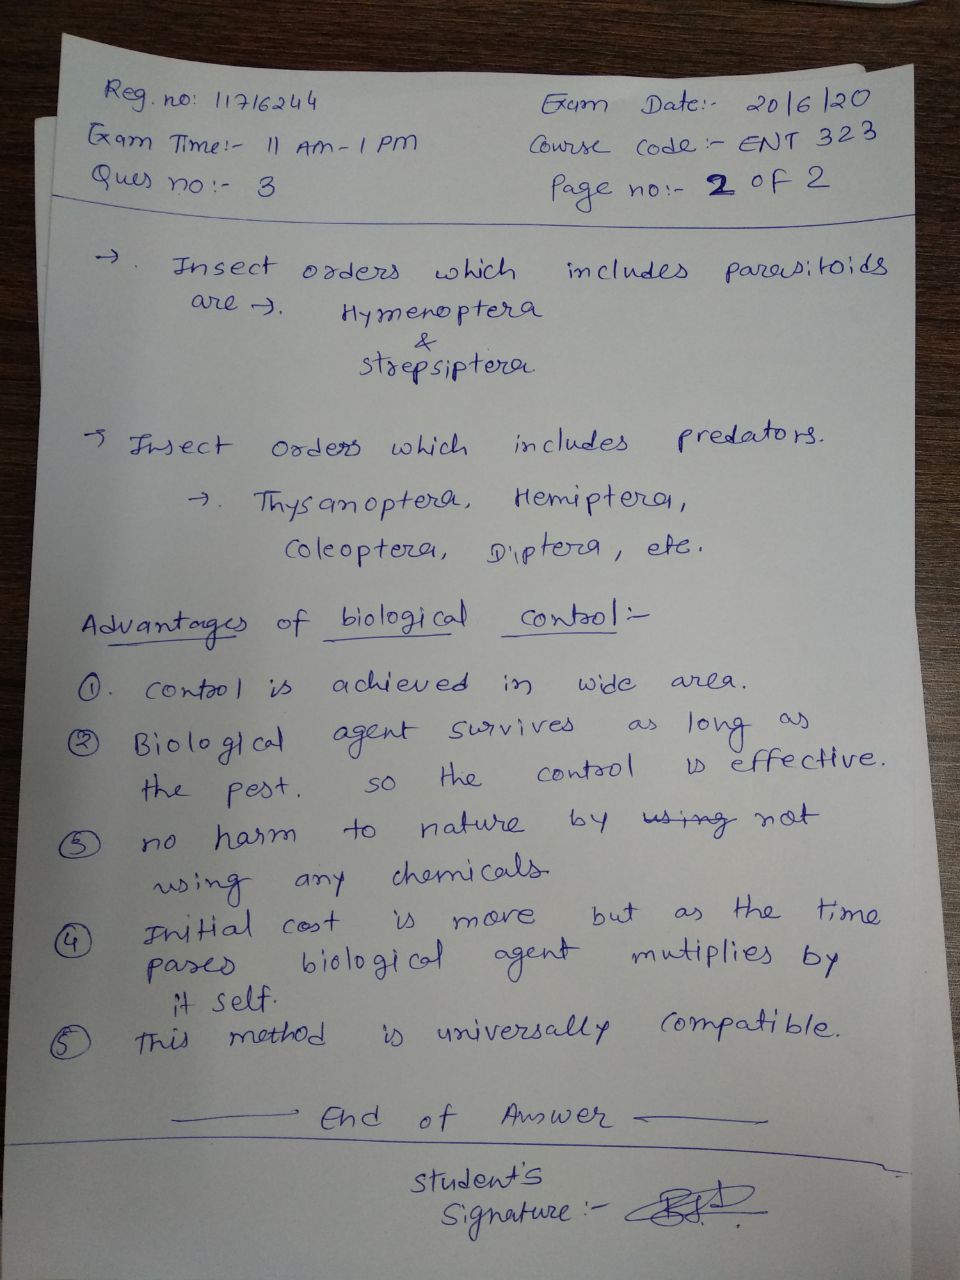 Reg. no: 11716244
Exam Date:- 20/6/20
Exam Time:- 11 AM-1 PM
Course code:- ENT 323
Ques no:- 3
Page no:- 2 of 2
→. Insect orders which includes parasitoids
are →. Hymenoptera
&
Strepsiptera
→ Insect orders which includes predators.
→. Thysanoptera, Hemiptera,
Coleoptera, Diptera, etc.
Advantages of biological control:-
①. Control is achieved in wide area.
② Biological agent survives as long as
the pest. so the control is effective.
③ no harm to nature by using not
using any chemicals
④ Initial cost is more but as the time
pases biological agent mutiplies by
it self.
⑤ This method is universally compatible.
End of Answer
Student's
Signature:-